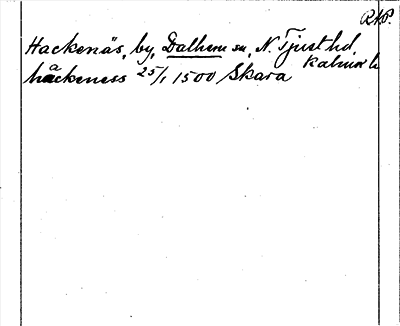 RAP.
Hackenäs, by, Dalhem sn, N. Tjust hd, Kalmar l.
håckeness 25/1 1500 Skara